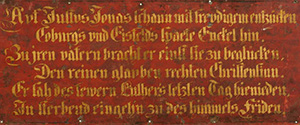 Auf Justus Jonas schaun mit freudigem entzücken
Coburgs und Eisfelds späte Enckel hin.
Zu jren vätern bracht er einst sie zu beglücken,
Den reinen glauben rechten Christensinn.
Er sah des tewern Luthers letzten Tag hienieden,
In sterbend eingehn zu des himmels Frieden.